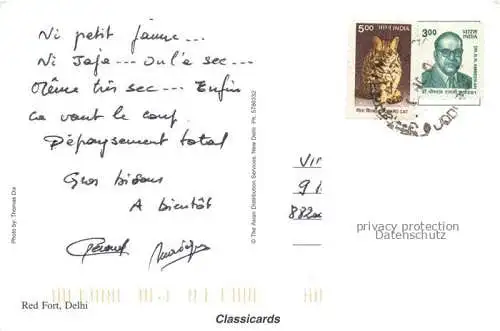 Ni petit jaune...
Ni Jaja --- On l'a sec ---
Même très sec... Enfin
ca vaut le coup.
Dépaysement total
Gros bisous
A bientôt
Photo by: Thomas Dix
© The Asian Distribution Services, New Delhi Ph. 5786032
5.00 भारत INDIA
LEOPARD CAT
3.00
भारत
INDIA
DR. B.R. AMBEDKAR
VI
9
882
privacy protection
Datenschutz
Red Fort, Delhi
Classicards